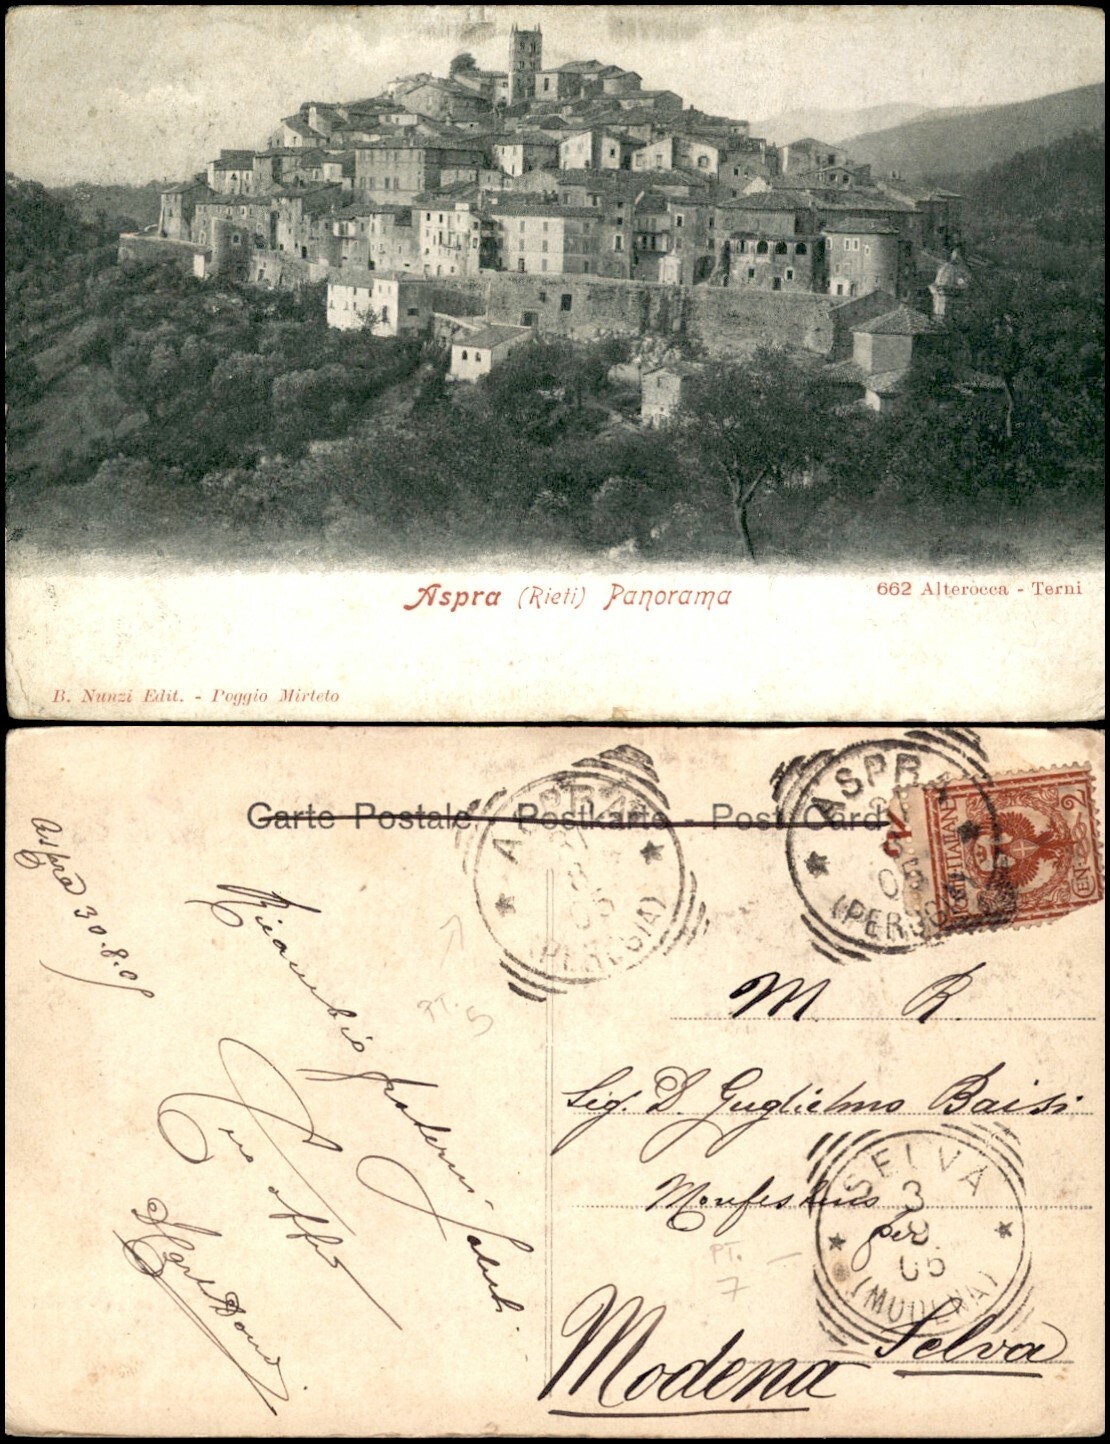 Aspra (Rieti) Panorama
662 Alterocca - Terni
B. Nunzi Edit. - Poggio Mirteto
Carte Postale - Postkarte - Post Card
ASPRA
(PERUGIA)
ASPRA
05
(PERUGIA)
EN. 2
Aspra 30.8.05
Ricambio fraterni
saluti
M. R.
Sig. D. Guglielmo Baisi
Monfestino
per
SELVA
3
05
(MODENA)
Selva
Modena
PT. 5
PT.
7